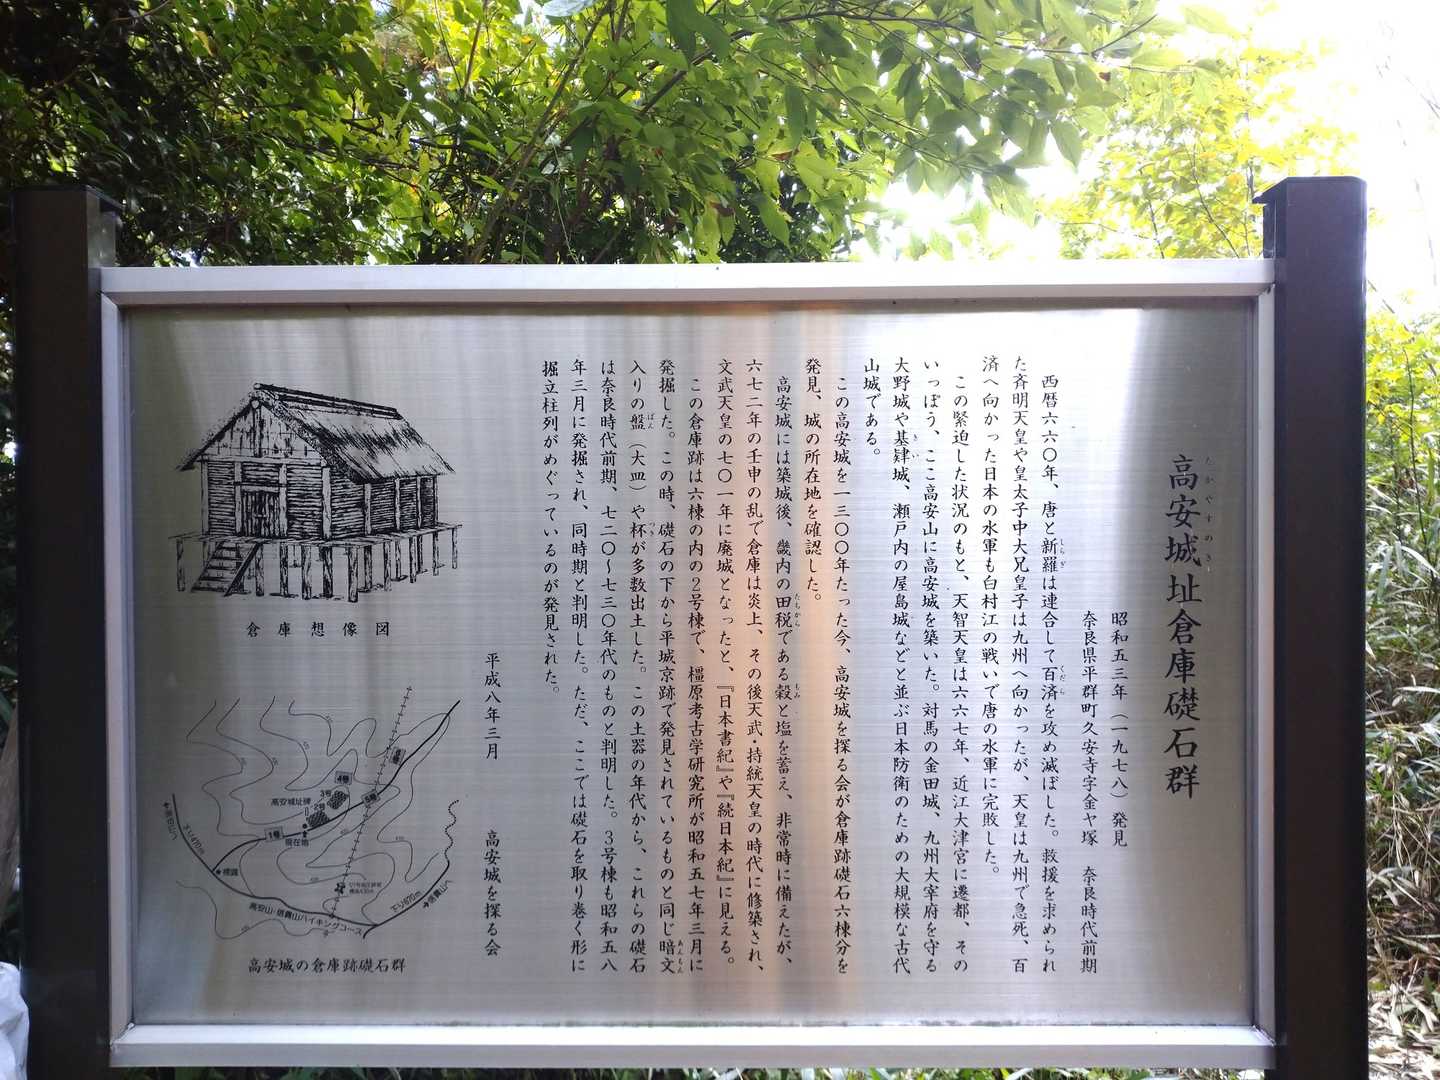 高安城址倉庫礎石群
たかやすのき
昭和五三年(一九七八)発見
奈良県平群町久安寺字金ヤ塚 奈良時代前期
西暦六六〇年、唐と新羅は連合して百済を攻め滅ぼした。救援を求められ
しらぎ
くだら
た斉明天皇や皇太子中大兄皇子は九州へ向かったが、天皇は九州で急死、百
済へ向かった日本の水軍も白村江の戦いで唐の水軍に完敗した。
この緊迫した状況のもと、天智天皇は六六七年、近江大津宮に遷都、その
いっぽう、ここ高安山に高安城を築いた。対馬の金田城、九州大宰府を守る
大野城や基肄城、瀬戸内の屋島城などと並ぶ日本防衛のための大規模な古代
きい
山城である。
この高安城を一三〇〇年たった今、高安城を探る会が倉庫跡礎石六棟分を
発見、城の所在地を確認した。
高安城には築城後、畿内の田税である穀と塩を蓄え、非常時に備えたが、
たちから
もみ
六七二年の壬申の乱で倉庫は炎上、その後天武・持統天皇の時代に修築され、
文武天皇の七〇一年に廃城となったと、『日本書紀』や『続日本紀』に見える。
この倉庫跡は六棟の内の2号棟で、橿原考古学研究所が昭和五七年三月に
発掘した。この時、礎石の下から平城京跡で発見されているものと同じ暗文
あんもん
入りの盤(大皿)や杯が多数出土した。この土器の年代から、これらの礎石
ばん
つき
は奈良時代前期、七二〇〜七三〇年代のものと判明した。3号棟も昭和五八
年三月に発掘され、同時期と判明した。ただ、ここでは礎石を取り巻く形に
掘立柱列がめぐっているのが発見された。
平成八年三月 高安城を探る会
倉庫想像図
4号
3号
2号
高安城址碑
1号
現在地
標識
高安山・信貴山ハイキングコース
高安城の倉庫跡礎石群